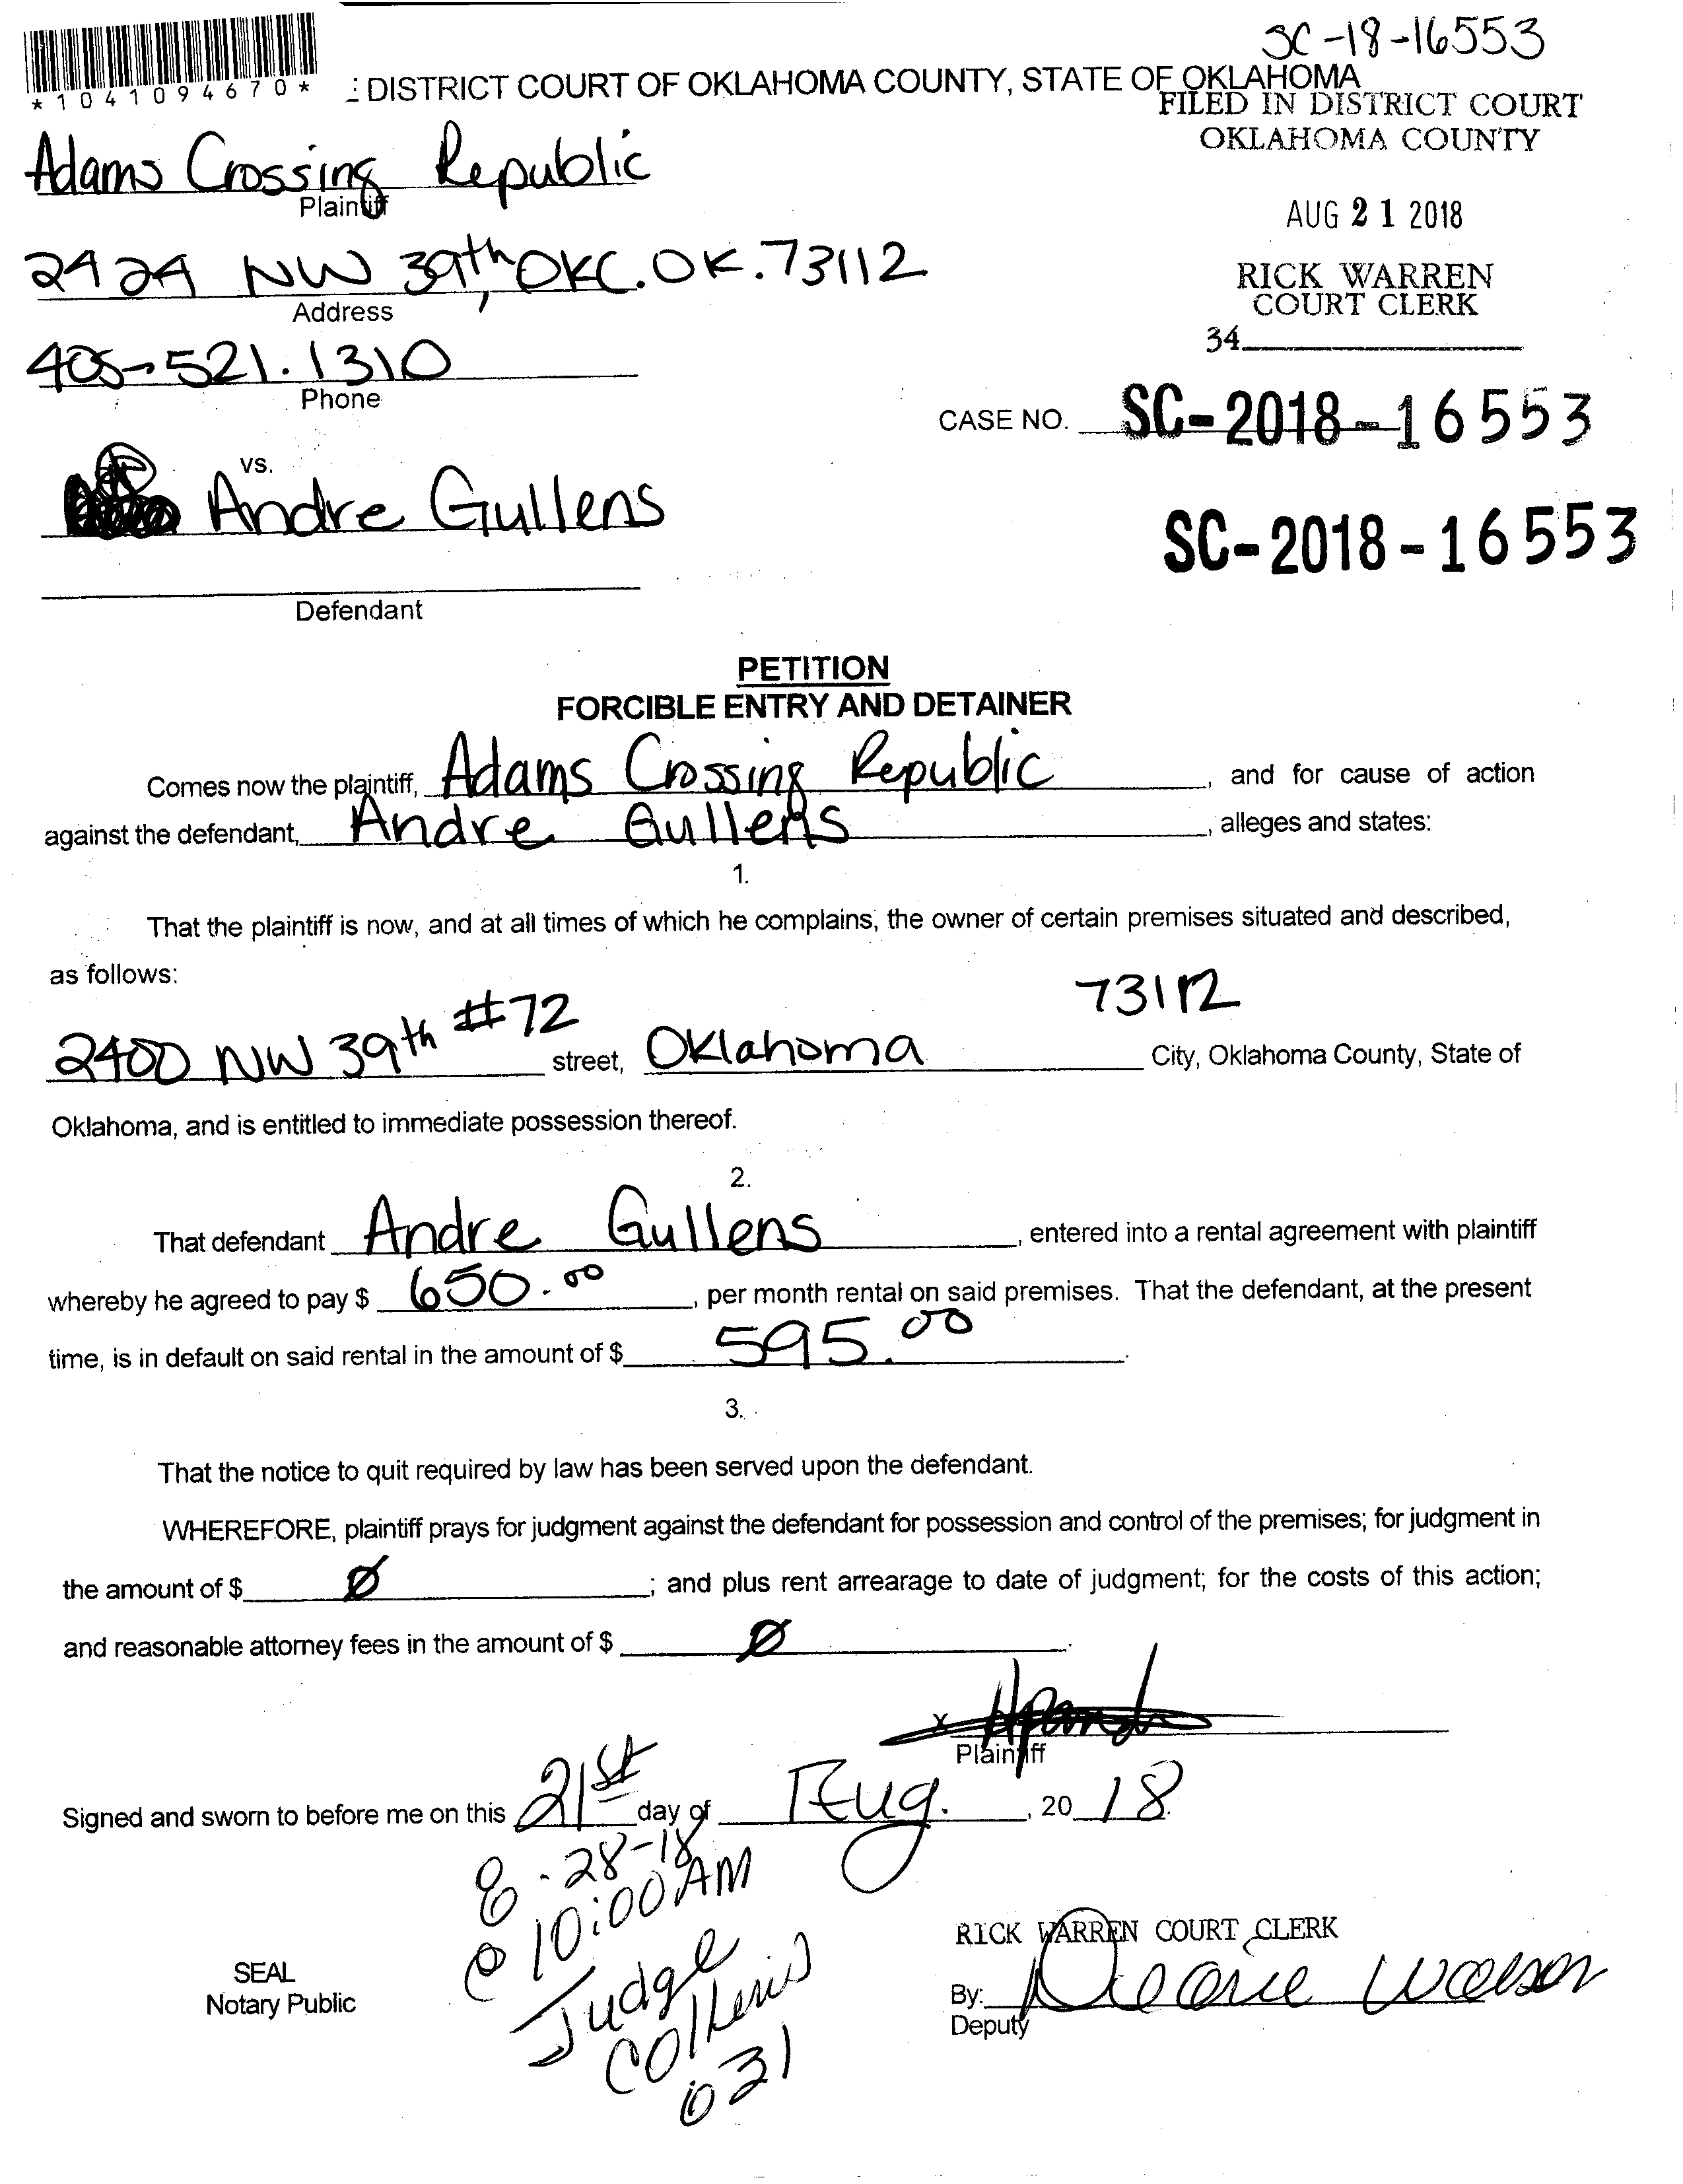 SC-18-16553
*1041094670*
: DISTRICT COURT OF OKLAHOMA COUNTY, STATE OF OKLAHOMA
FILED IN DISTRICT COURT
OKLAHOMA COUNTY
Adams Crossing Republic
Plaintiff
AUG 21 2018
2424 NW 39th, OKC. OK. 73112
Address
RICK WARREN
COURT CLERK
34
405-521.1310
Phone
CASE NO. SC-2018-16553
vs.
Andre Gullens
SC-2018-16553
Defendant
PETITION
FORCIBLE ENTRY AND DETAINER
Comes now the plaintiff, Adams Crossing Republic, and for cause of action
against the defendant, Andre Gullens, alleges and states:
1.
That the plaintiff is now, and at all times of which he complains, the owner of certain premises situated and described,
as follows:
73112
2400 NW 39th #72 street, Oklahoma City, Oklahoma County, State of
Oklahoma, and is entitled to immediate possession thereof.
2.
That defendant Andre Gullens, entered into a rental agreement with plaintiff
whereby he agreed to pay $ 650.00, per month rental on said premises. That the defendant, at the present
time, is in default on said rental in the amount of $ 595.00.
3.
That the notice to quit required by law has been served upon the defendant.
WHEREFORE, plaintiff prays for judgment against the defendant for possession and control of the premises; for judgment in
the amount of $ Ø; and plus rent arrearage to date of judgment; for the costs of this action;
and reasonable attorney fees in the amount of $ Ø.
x
Plaintiff
Signed and sworn to before me on this 21st day of Aug., 2018.
8-28-18
@ 10:00 AM
Judge
RICK WARREN COURT CLERK
SEAL
Notary Public
By:
Deputy